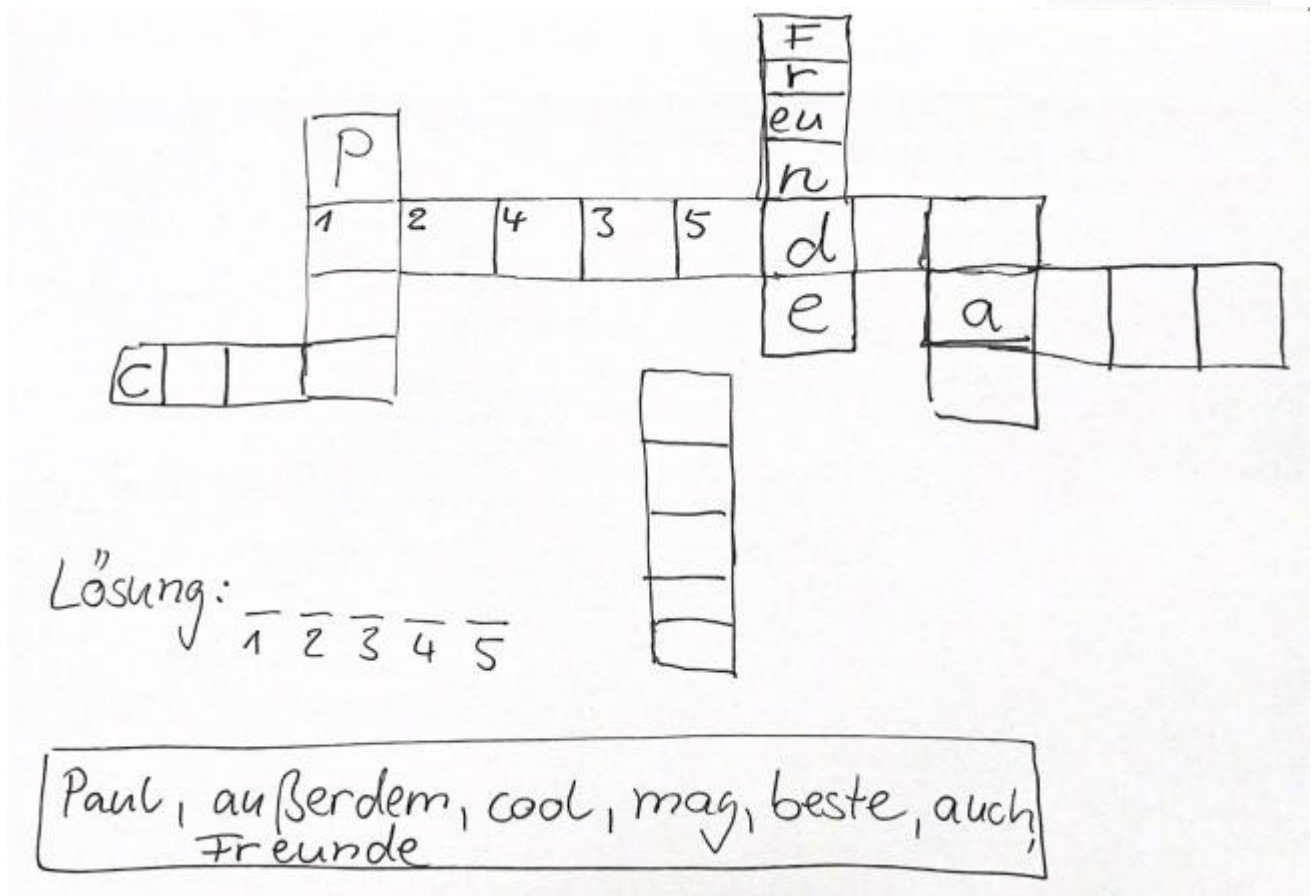 F
r
eu
P
n
1 2 4 3 5 d
e a
C
Lösung:
1 2 3 4 5
Paul, außerdem, cool, mag, beste, auch,
Freunde